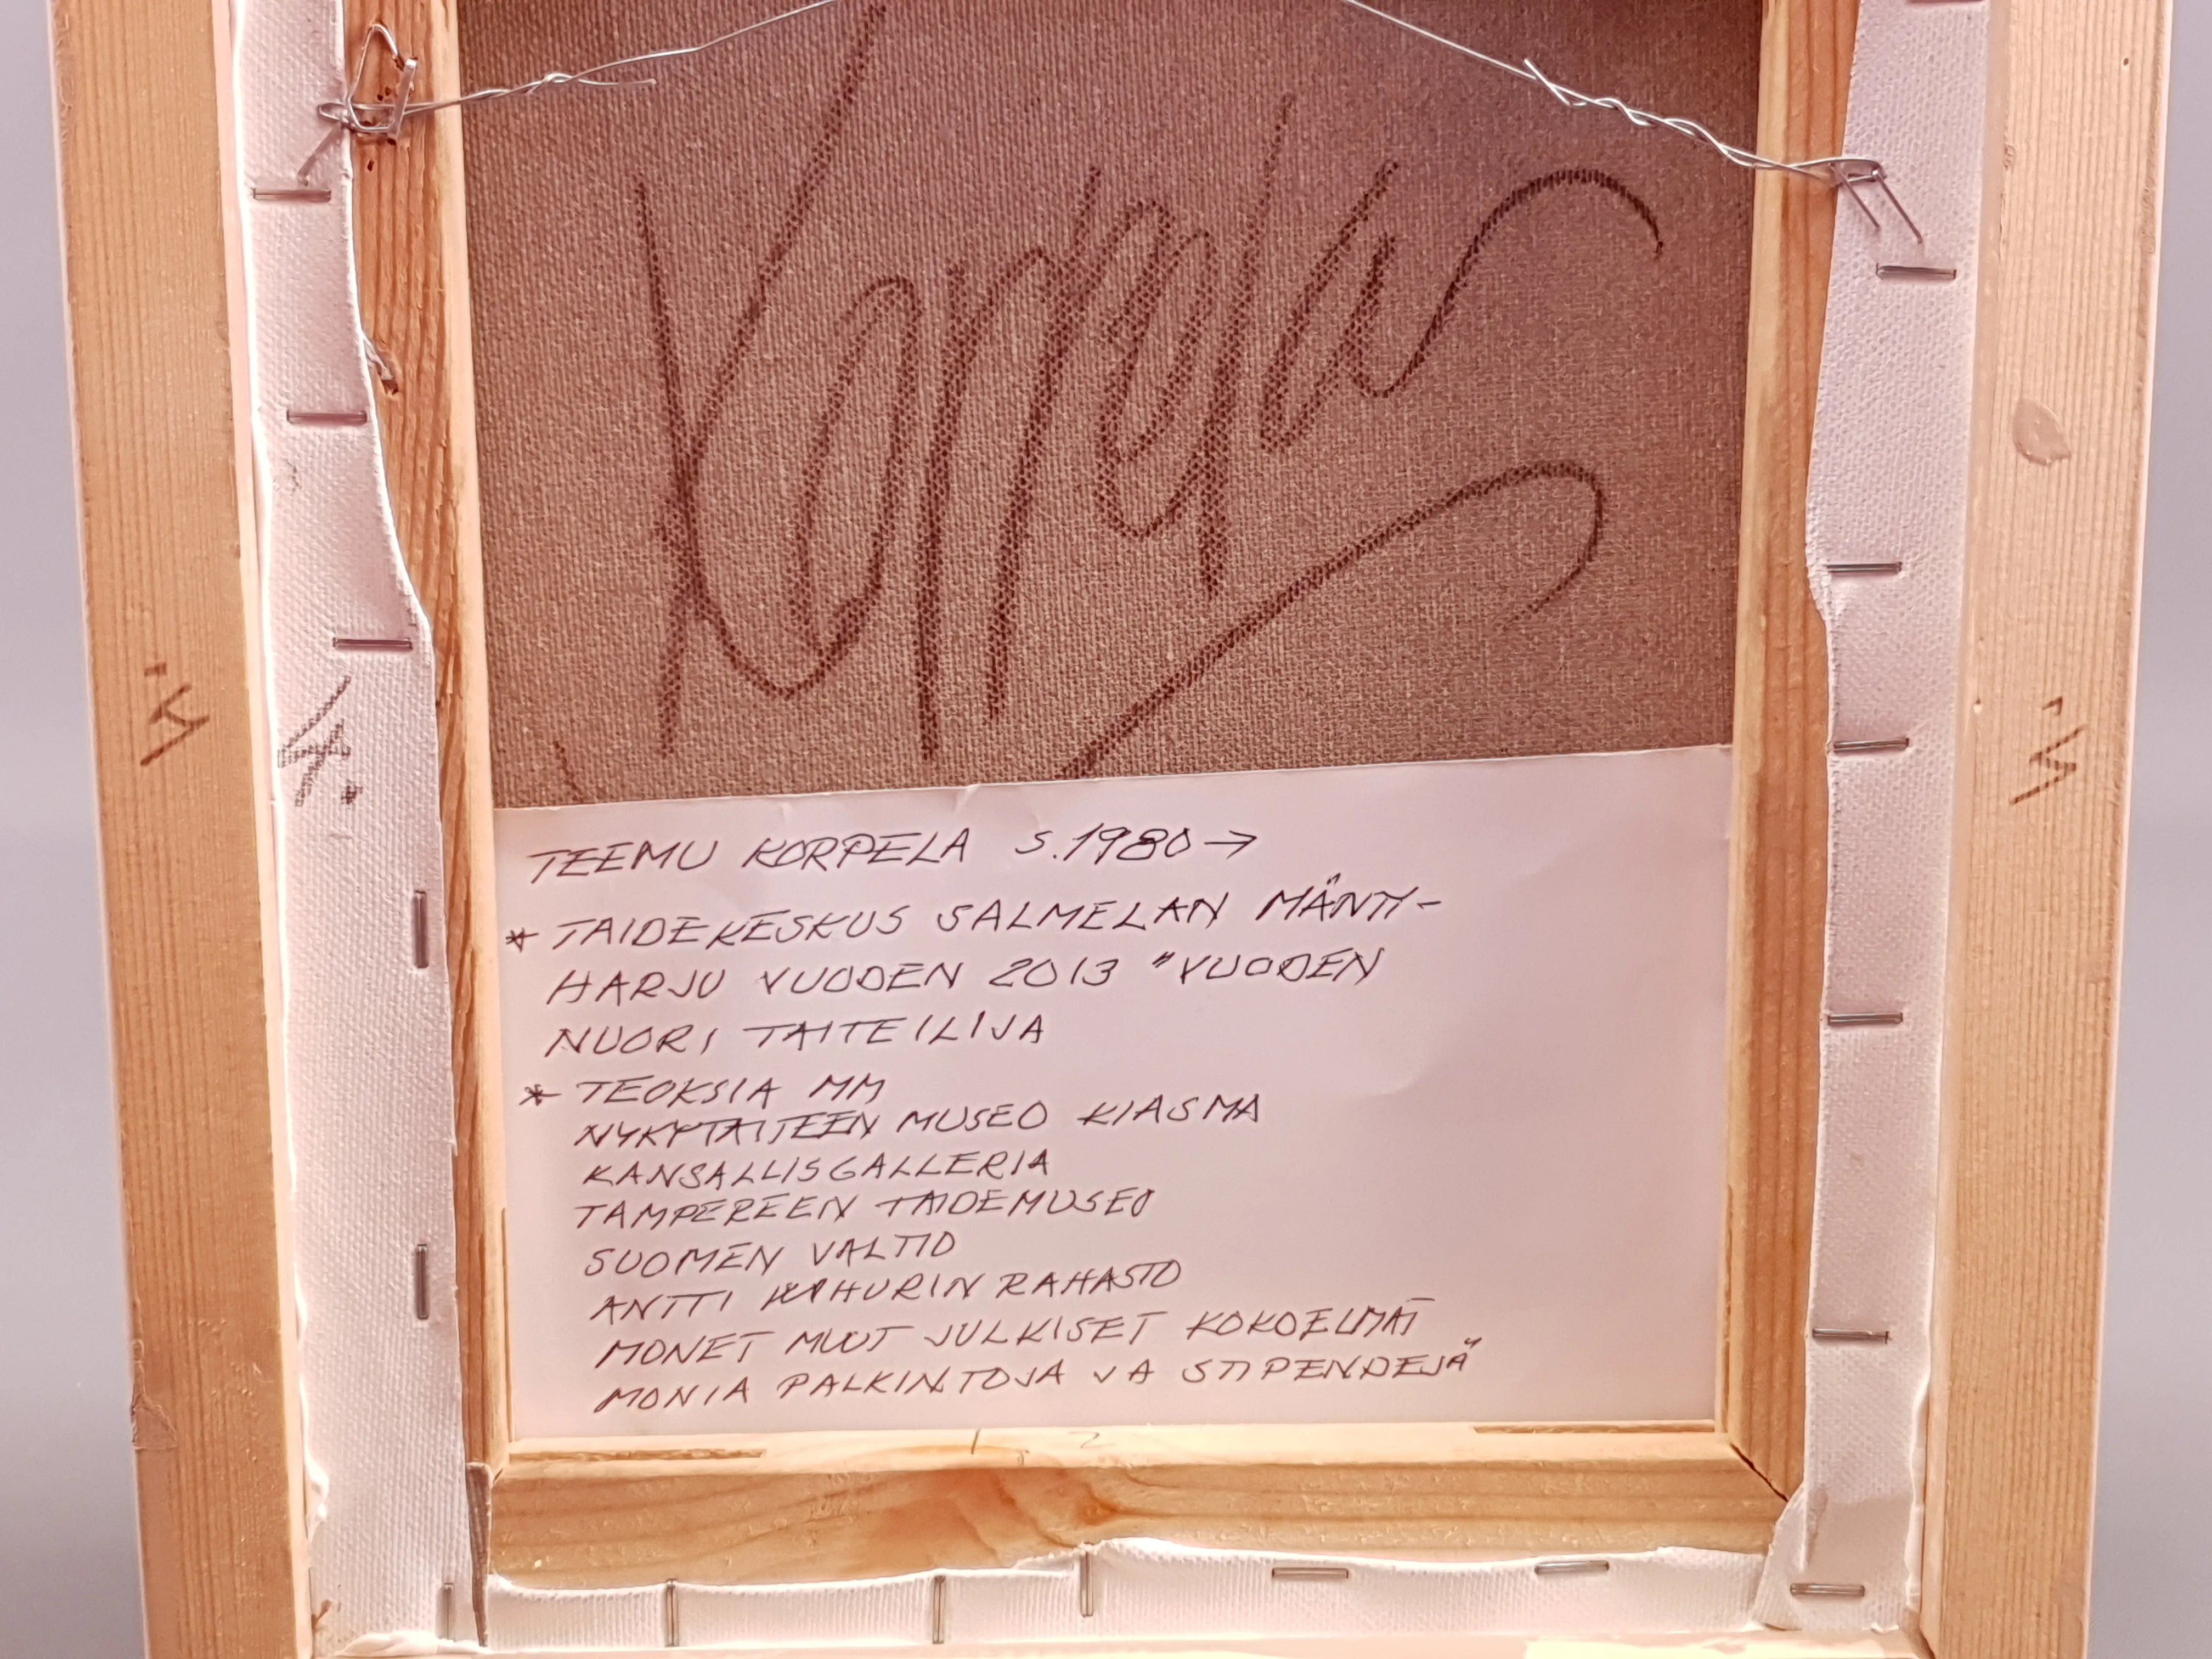 Korpela
TEEMU KORPELA S.1980→
* TAIDEKESKUS SALMELAN MÄNTY-
HARJU VUODEN 2013 "VUODEN
NUORI TAITEILIJA
* TEOKSIA MM
NYKYTAITEEN MUSEO KIASMA
KANSALLISGALLERIA
TAMPEREEN TAIDEMUSEO
SUOMEN VALTIO
ANTTI WIHURIN RAHASTO
MONET MUUT JULKISET KOKOELMAT
MONIA PALKINTOJA JA STIPENDEJÄ
2